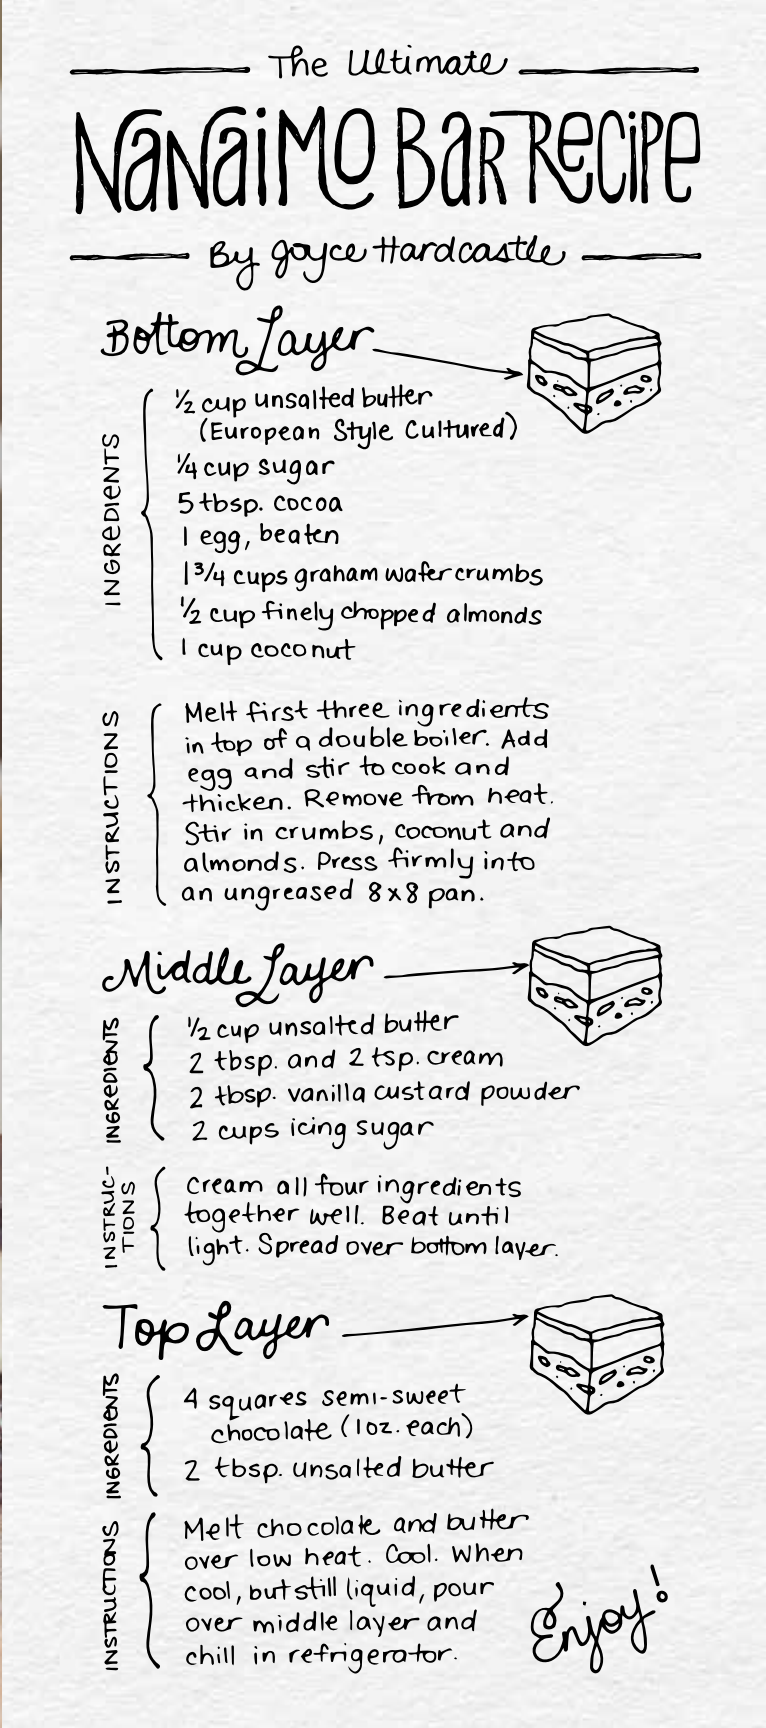 The Ultimate
Nanaimo Bar Recipe
By Joyce Hardcastle
Bottom Layer
INGREDIENTS
½ cup unsalted butter
(European Style Cultured)
¼ cup sugar
5 tbsp. cocoa
1 egg, beaten
1 ¾ cups graham wafer crumbs
½ cup finely chopped almonds
1 cup coconut
INSTRUCTIONS
Melt first three ingredients
in top of a double boiler. Add
egg and stir to cook and
thicken. Remove from heat.
Stir in crumbs, coconut and
almonds. Press firmly into
an ungreased 8x8 pan.
Middle Layer
INGREDIENTS
½ cup unsalted butter
2 tbsp. and 2 tsp. cream
2 tbsp. vanilla custard powder
2 cups icing sugar
INSTRUC-
TIONS
Cream all four ingredients
together well. Beat until
light. Spread over bottom layer.
Top Layer
INGREDIENTS
4 squares semi-sweet
chocolate (1oz. each)
2 tbsp. unsalted butter
INSTRUCTIONS
Melt chocolate and butter
over low heat. Cool. When
cool, but still liquid, pour
over middle layer and
chill in refrigerator.
Enjoy!